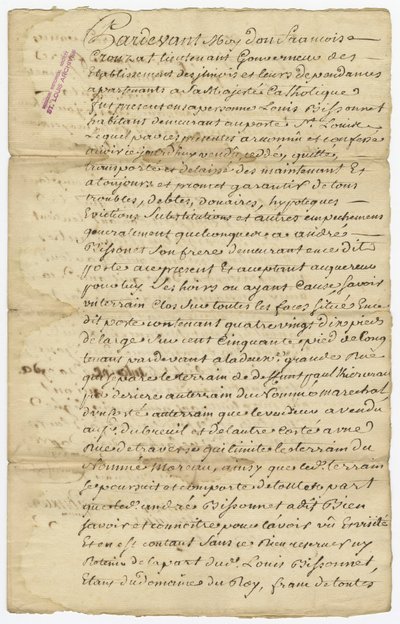 Pardevant Moy don francois
Crouzat Lieutenant Gouverneur des
Etablissement des jlinois et leurs dependances
apartenants a Sa Majesté Catholique
fut present en sa personne Louis Bissonnet
habitans demeurant au poste St Louis
Lequel par ces presentes a reconnu et confessé
avoir ce jourd'huy vendu, cedé, quitté,
transporté et delaissé des maintenant Et
a toujours et promet garantir de tous
troubles, debtes, douaires, hypoteques
Evictions Substitutions et autres empechemens
generalement quelconques a andré
Bissonet Son frere demeurant en ce dit
poste a ce present Et acceptant acquereur
pour luy Ses hoirs ou ayant Cause, Savoir
un terrain Clos Sur toutes les faces Situé En ce
dit poste contenant quatre vingt dix pieds
de large Sur cent Cinquante pied de long
tenant par devant a la deuxe. grande Rue
qui Separe le terrain de deffunt paul
par derriere au terrain du nommé marechal,
d'un Coté au terrain que le vendeur a vendu
au Sr. dubreuil et de l'autre Costé a une
Rue de traverse qui limite le terrain du
nommé Moreau, ainsy que led. terrain
Se poursuit et comporte de toute part
que led. andré Bissonnet a dit Bien
Savoir et connoître pour l'avoir vû Et visité
Et en est contant Sans en Rien reserver ny
Retenir de la part dud. Louis Bissonnet,
Etans du domaine du Roy, franc de toutes
ST. LOUIS ARCHIVES